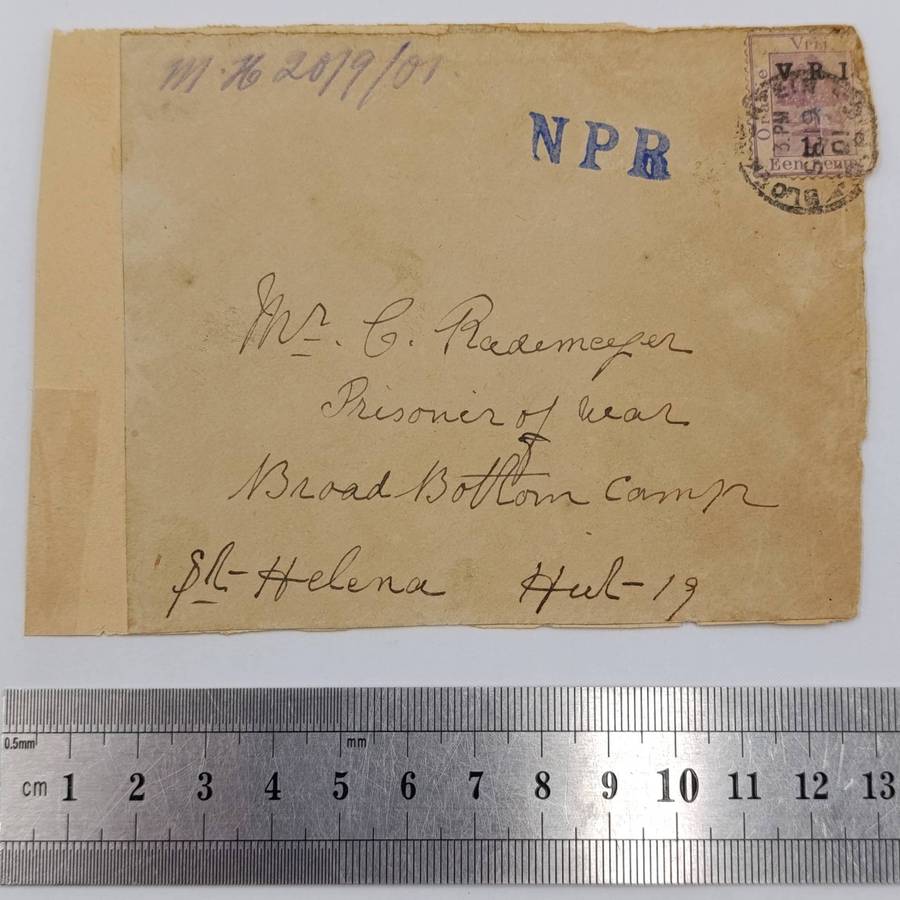 M. H 20/9/01
NPR
Vrij
V. R. I.
Oranje
1d
Een penny
3. PM
SE 19
01
BLO
Mr. C. Rademeyer
Prisoner of war
Broad Bottom Camp
St Helena Hut 19
0.5mm mm
cm 1 2 3 4 5 6 7 8 9 10 11 12 13